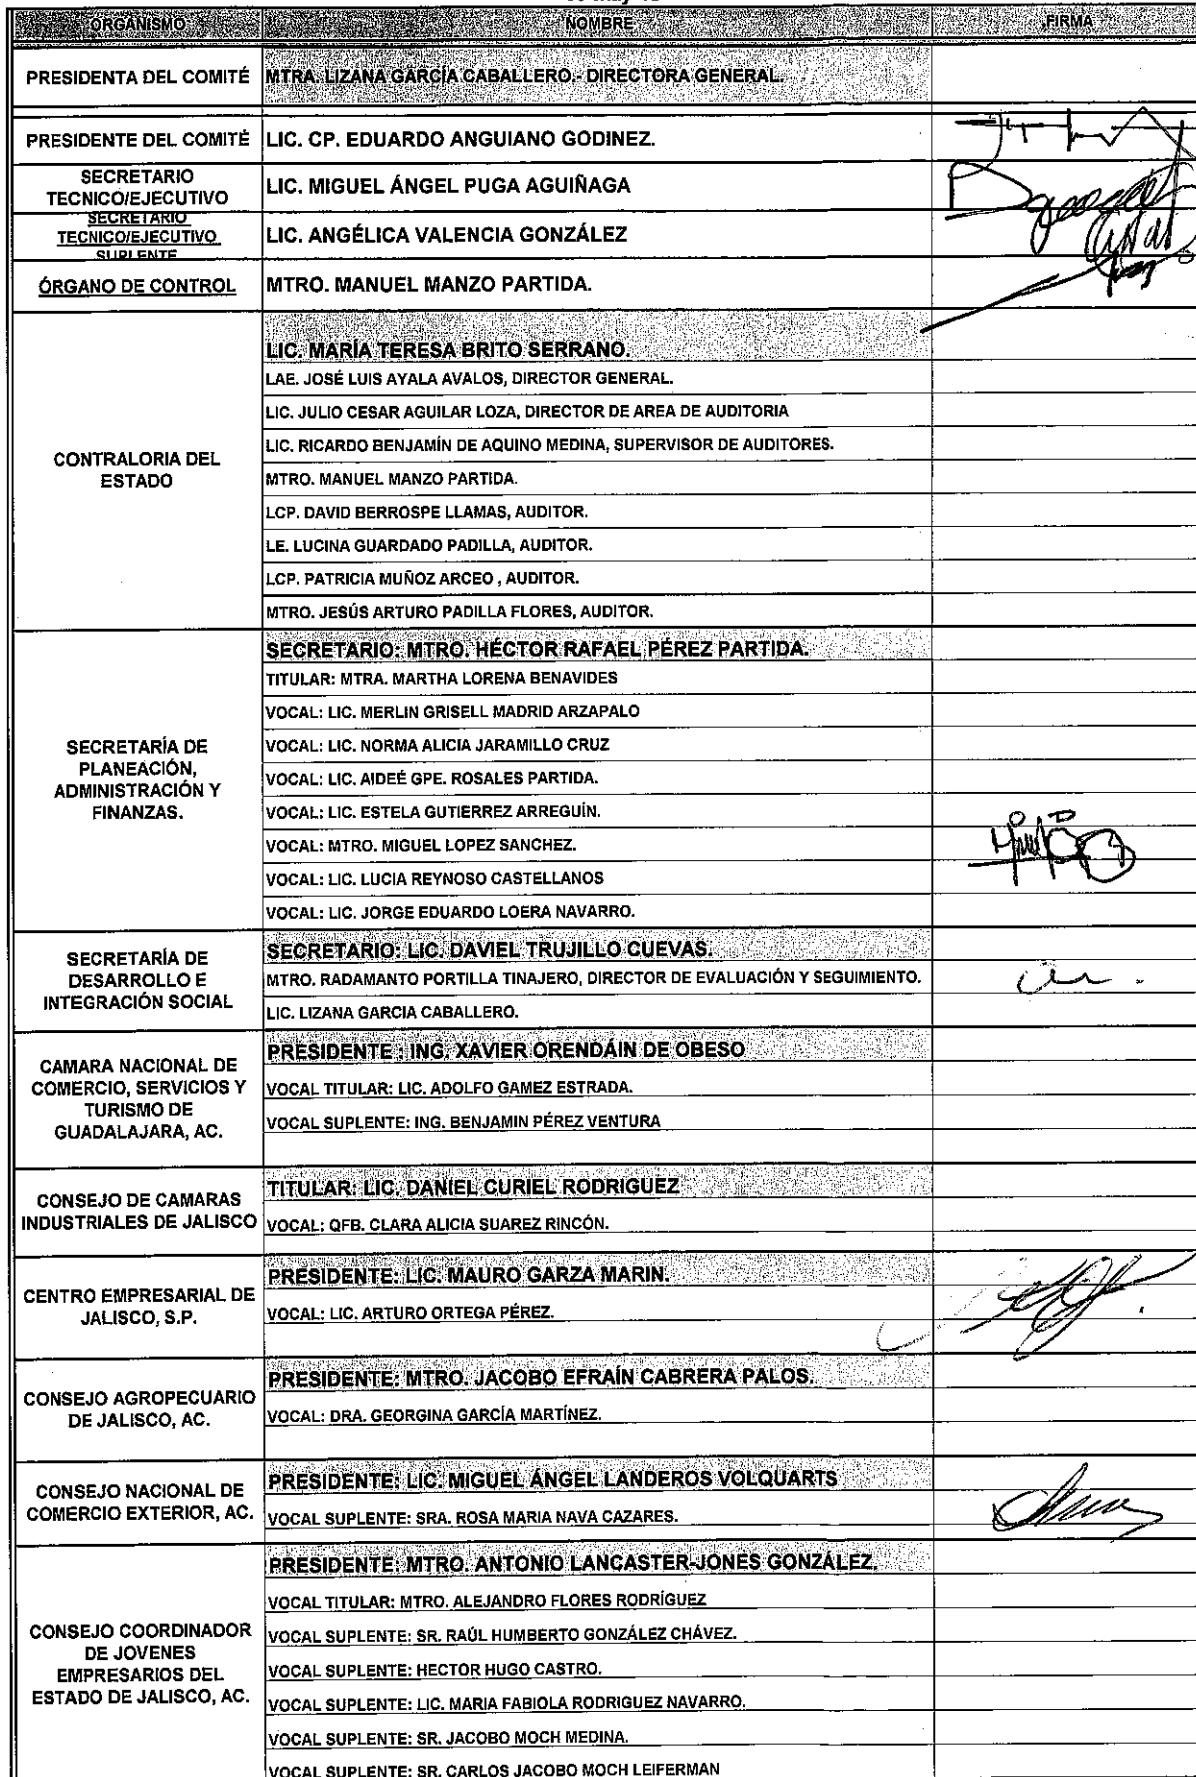 ORGANISMO NOMBRE FIRMA
PRESIDENTA DEL COMITÉ MTRA. LIZANA GARCÍA CABALLERO.- DIRECTORA GENERAL.
PRESIDENTE DEL COMITÉ LIC. CP. EDUARDO ANGUIANO GODINEZ.
SECRETARIO
TECNICO/EJECUTIVO
LIC. MIGUEL ÁNGEL PUGA AGUIÑAGA
SECRETARIO
TECNICO/EJECUTIVO
SUPLENTE
LIC. ANGÉLICA VALENCIA GONZÁLEZ
ÓRGANO DE CONTROL MTRO. MANUEL MANZO PARTIDA.
CONTRALORIA DEL
ESTADO
LIC. MARÍA TERESA BRITO SERRANO.
LAE. JOSÉ LUIS AYALA AVALOS, DIRECTOR GENERAL.
LIC. JULIO CESAR AGUILAR LOZA, DIRECTOR DE AREA DE AUDITORIA
LIC. RICARDO BENJAMÍN DE AQUINO MEDINA, SUPERVISOR DE AUDITORES.
MTRO. MANUEL MANZO PARTIDA.
LCP. DAVID BERROSPE LLAMAS, AUDITOR.
LE. LUCINA GUARDADO PADILLA, AUDITOR.
LCP. PATRICIA MUÑOZ ARCEO , AUDITOR.
MTRO. JESÚS ARTURO PADILLA FLORES, AUDITOR.
SECRETARÍA DE
PLANEACIÓN,
ADMINISTRACIÓN Y
FINANZAS.
SECRETARIO: MTRO. HÉCTOR RAFAEL PÉREZ PARTIDA.
TITULAR: MTRA. MARTHA LORENA BENAVIDES
VOCAL: LIC. MERLIN GRISELL MADRID ARZAPALO
VOCAL: LIC. NORMA ALICIA JARAMILLO CRUZ
VOCAL: LIC. AIDEÉ GPE. ROSALES PARTIDA.
VOCAL: LIC. ESTELA GUTIERREZ ARREGUÍN.
VOCAL: MTRO. MIGUEL LOPEZ SANCHEZ.
VOCAL: LIC. LUCIA REYNOSO CASTELLANOS
VOCAL: LIC. JORGE EDUARDO LOERA NAVARRO.
SECRETARÍA DE
DESARROLLO E
INTEGRACIÓN SOCIAL
SECRETARIO: LIC. DAVIEL TRUJILLO CUEVAS.
MTRO. RADAMANTO PORTILLA TINAJERO, DIRECTOR DE EVALUACIÓN Y SEGUIMIENTO.
LIC. LIZANA GARCIA CABALLERO.
CAMARA NACIONAL DE
COMERCIO, SERVICIOS Y
TURISMO DE
GUADALAJARA, AC.
PRESIDENTE : ING. XAVIER ORENDÁIN DE OBESO
VOCAL TITULAR: LIC. ADOLFO GAMEZ ESTRADA.
VOCAL SUPLENTE: ING. BENJAMIN PÉREZ VENTURA
CONSEJO DE CAMARAS
INDUSTRIALES DE JALISCO
TITULAR: LIC. DANIEL CURIEL RODRIGUEZ
VOCAL: QFB. CLARA ALICIA SUAREZ RINCÓN.
CENTRO EMPRESARIAL DE
JALISCO, S.P.
PRESIDENTE: LIC. MAURO GARZA MARIN.
VOCAL: LIC. ARTURO ORTEGA PÉREZ.
CONSEJO AGROPECUARIO
DE JALISCO, AC.
PRESIDENTE: MTRO. JACOBO EFRAÍN CABRERA PALOS.
VOCAL: DRA. GEORGINA GARCÍA MARTÍNEZ.
CONSEJO NACIONAL DE
COMERCIO EXTERIOR, AC.
PRESIDENTE: LIC. MIGUEL ÁNGEL LANDEROS VOLQUARTS
VOCAL SUPLENTE: SRA. ROSA MARIA NAVA CAZARES.
CONSEJO COORDINADOR
DE JOVENES
EMPRESARIOS DEL
ESTADO DE JALISCO, AC.
PRESIDENTE: MTRO. ANTONIO LANCASTER-JONES GONZÁLEZ.
VOCAL TITULAR: MTRO. ALEJANDRO FLORES RODRÍGUEZ
VOCAL SUPLENTE: SR. RAÚL HUMBERTO GONZÁLEZ CHÁVEZ.
VOCAL SUPLENTE: HECTOR HUGO CASTRO.
VOCAL SUPLENTE: LIC. MARIA FABIOLA RODRIGUEZ NAVARRO.
VOCAL SUPLENTE: SR. JACOBO MOCH MEDINA.
VOCAL SUPLENTE: SR. CARLOS JACOBO MOCH LEIFERMAN